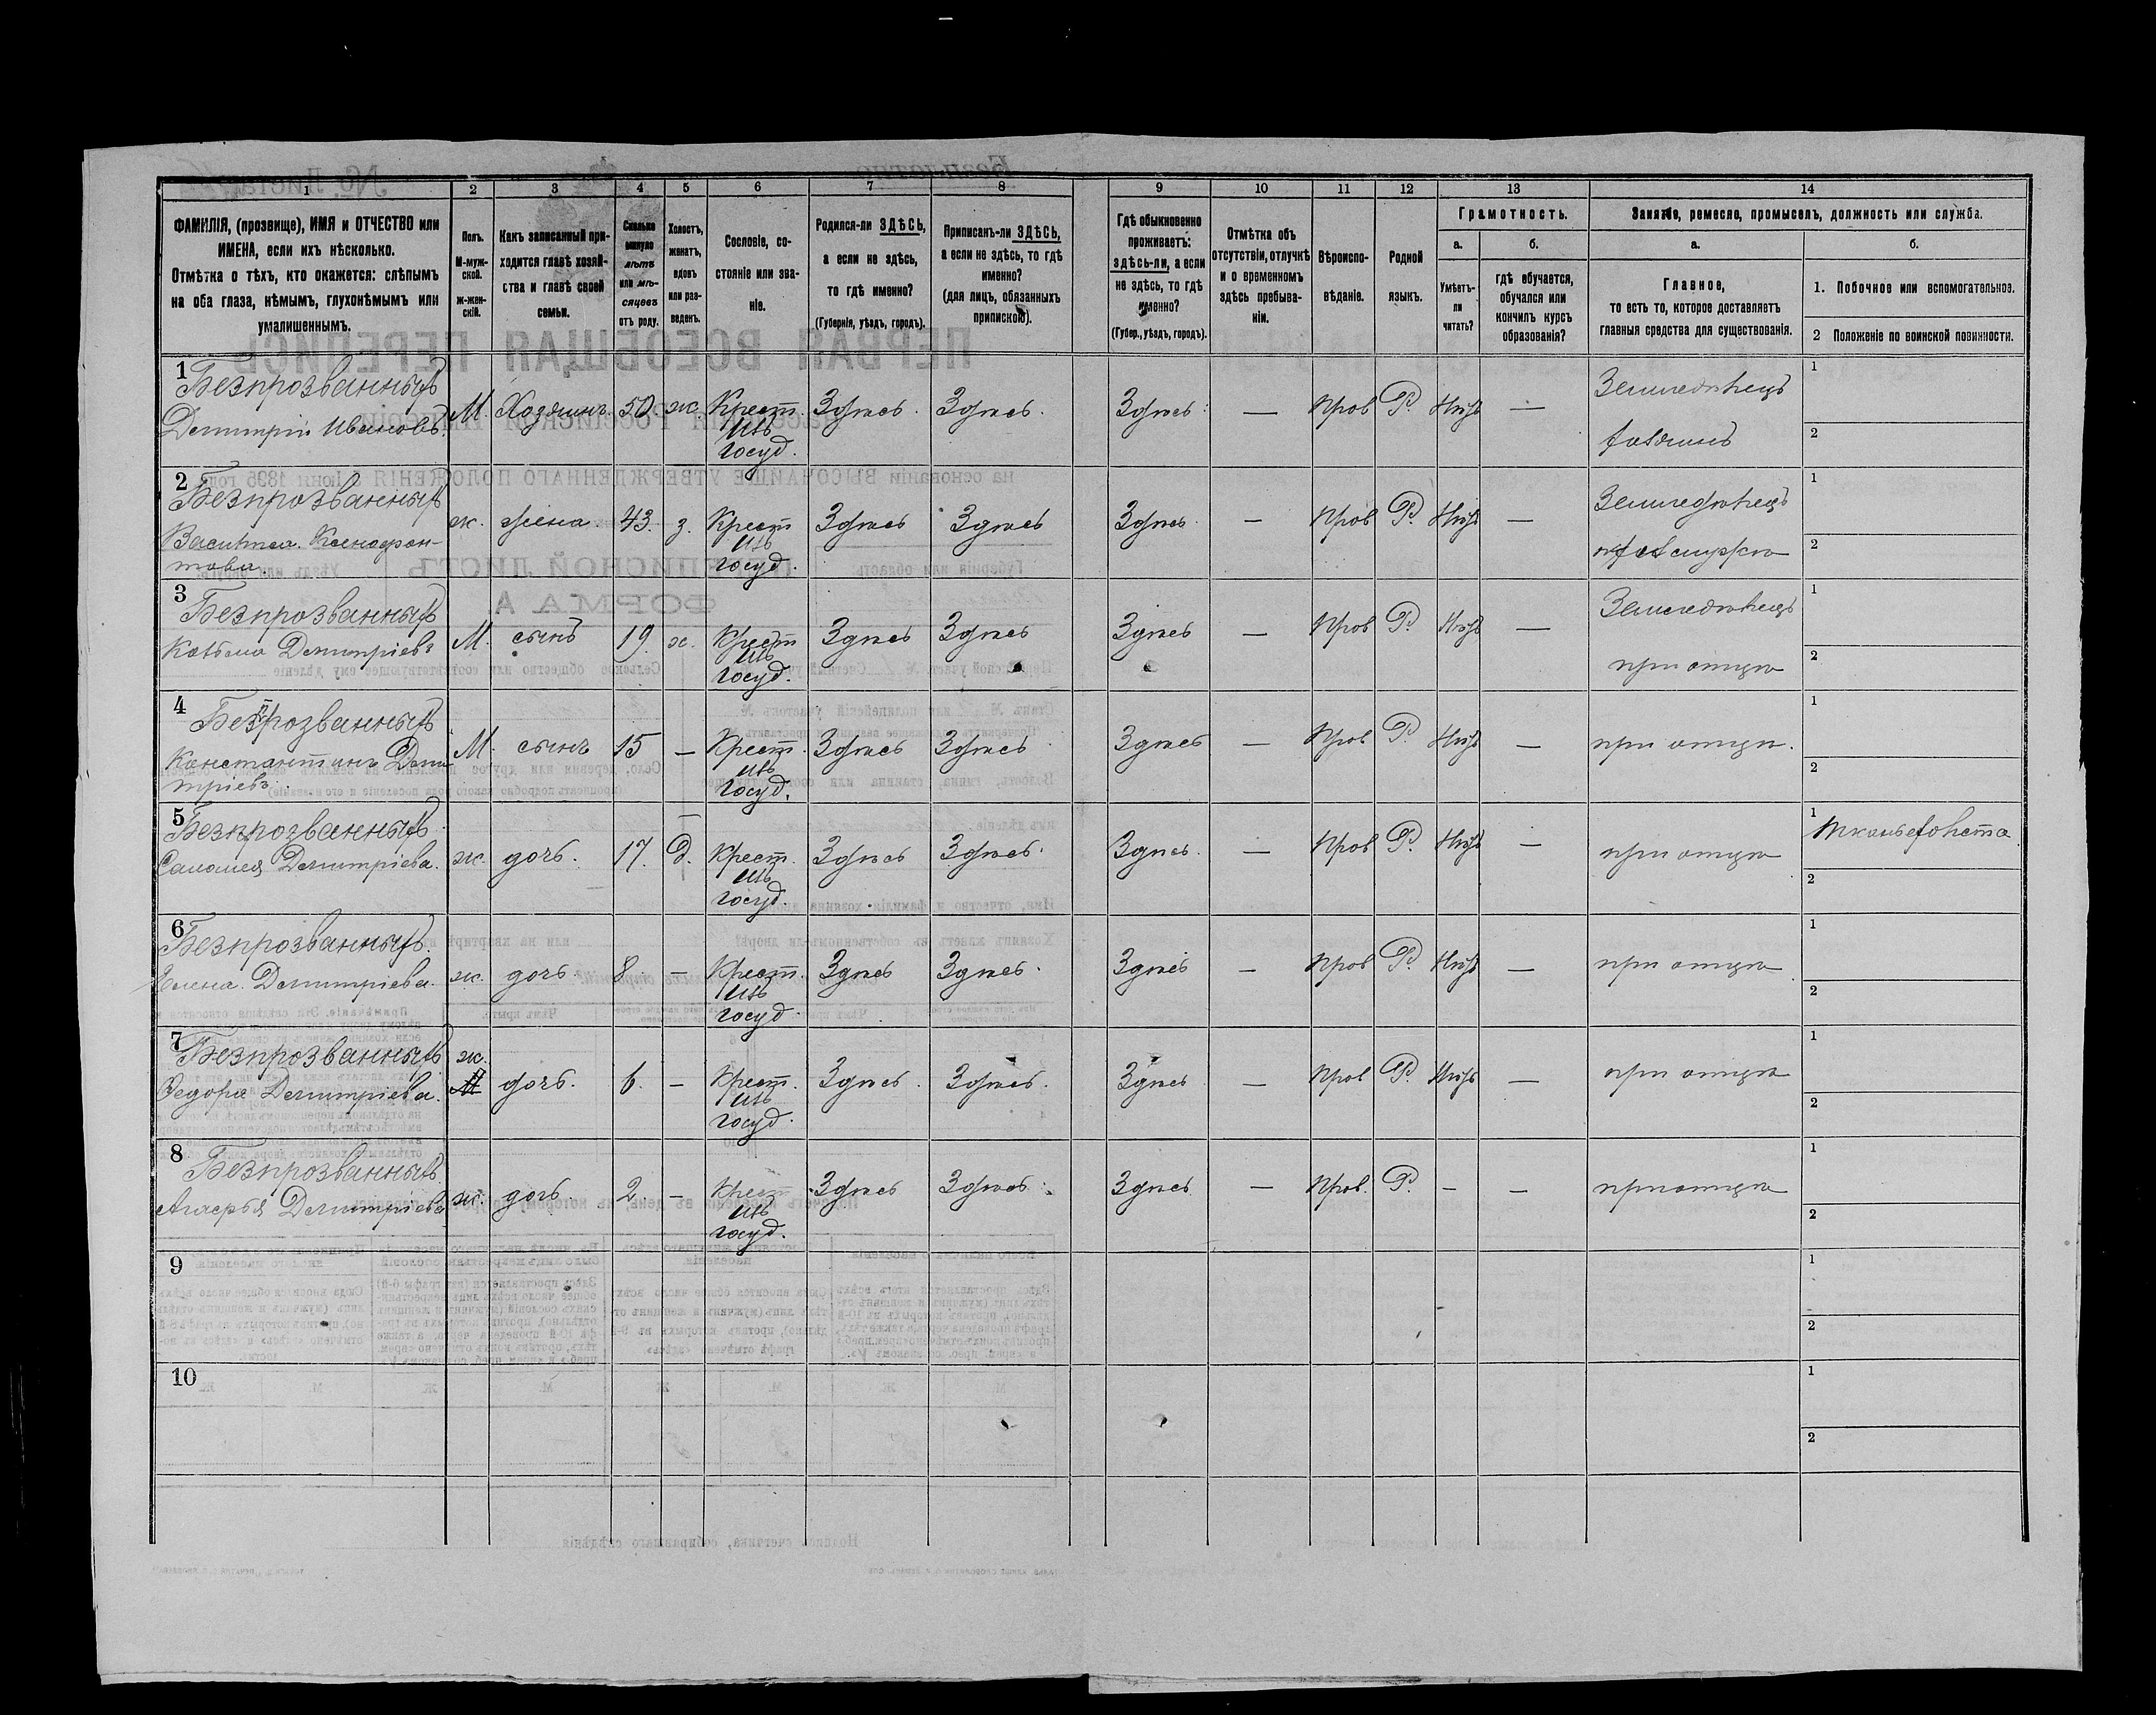 1 2 3 4 5 6 7 8 9 10 11 12 13 14
ФАМИЛІЯ, (прозвище), ИМЯ и ОТЧЕСТВО или
ИМЕНА, если ихъ нѣсколько.
Отмѣтка о тѣхъ, кто окажется: слѣпымъ
на оба глаза, нѣмымъ, глухонѣмымъ или
умалишеннымъ.
Полъ.
М-муж-
ской.
ж-жен-
скій.
Какъ записанный при-
ходится главѣ хозяй-
ства и главѣ своей
семьи.
Сколько
минуло
лѣтъ
или мѣ-
сяцевъ
отъ роду.
Холостъ,
женатъ,
вдовъ
или раз-
веденъ.
Сословіе, со-
стояніе или зва-
ніе.
Родился-ли ЗДѢСЬ,
а если не здѣсь,
то гдѣ именно?
(Губернія, уѣздъ, городъ).
Приписанъ-ли ЗДѢСЬ,
а если не здѣсь, то гдѣ
именно?
(для лицъ, обязанныхъ
припискою).
Гдѣ обыкновенно
проживаетъ:
здѣсь-ли, а если
не здѣсь, то гдѣ
именно?
(Губер., уѣздъ, городъ).
Отмѣтка объ
отсутствіи, отлучкѣ
и о временномъ
здѣсь пребыва-
ніи.
Вѣроиспо-
вѣданіе.
Родной
языкъ.
Грамотность.
а. б.
Умѣетъ-
ли
читать?
гдѣ обучается,
обучался или
кончилъ курсъ
образованія?
Занятіе, ремесло, промыселъ, должность или служба.
а. б.
Главное,
то есть то, которое доставляетъ
главныя средства для существованія.
1. Побочное или вспомогательное.
2 Положеніе по воинской повинности.
1 Безпрозванныхъ
Демитрій Ивановъ. М. Хозяинъ 50 ж Крест. Здѣсь. Здѣсь. Здѣсь — Прав Р. Нѣтъ — Земледѣлецъ 1
изъ
госуд. хозяинъ 2
2 Безпрозванныхъ
Ксенофон-
това. ж. жена 43. з. Крест Здѣсь Здѣсь Здѣсь — Прав Р. Нѣтъ — Земледѣлецъ 1
изъ
госуд. 2
3 Безпрозванныхъ
Козьма Демитріевъ М. сынъ 19. х. Крест Здѣсь Здѣсь Здѣсь — Прав Р. Нѣтъ — Земледѣлецъ 1
изъ
госуд. при отцѣ 2
4 Безпрозванныхъ
Константинъ Деми
тріевъ. М. сынъ 15 — Крест. Здѣсь Здѣсь Здѣсь — Прав Р. Нѣтъ — при отцѣ. 1
изъ
госуд. 2
5 Безпрозванныхъ
Саломея Демитріева. ж. дочь. 17. д. Крест. Здѣсь Здѣсь. Здѣсь. — Прав Р. Нѣтъ — при отцѣ 1
изъ
госуд. 2
6 Безпрозванныхъ.
Елена Демитріева. ж. дочь 8 — Крест. Здѣсь Здѣсь. Здѣсь — Прав Р. Нѣтъ — при отцѣ 1
изъ
госуд. 2
7 Безпрозванныхъ ж.
Федора Демитріева. М дочь. 6. — Крест. Здѣсь. Здѣсь. Здѣсь — Прав Р. Нѣтъ — при отцѣ 1
изъ
госуд. 2
8 Безпрозванныхъ
Демитріева ж. дочь. 2 — Крест Здѣсь Здѣсь. Здѣсь — Прав. Р. — — при отцѣ 1
изъ
госуд. 2
9 1
2
10 1
2